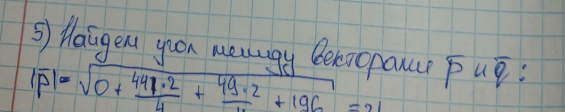 5) Найдем угол между векторами p̅ и q̅ :
|p̅|= √0 + 441·2/4 + 49·2/4 + 196 = 21